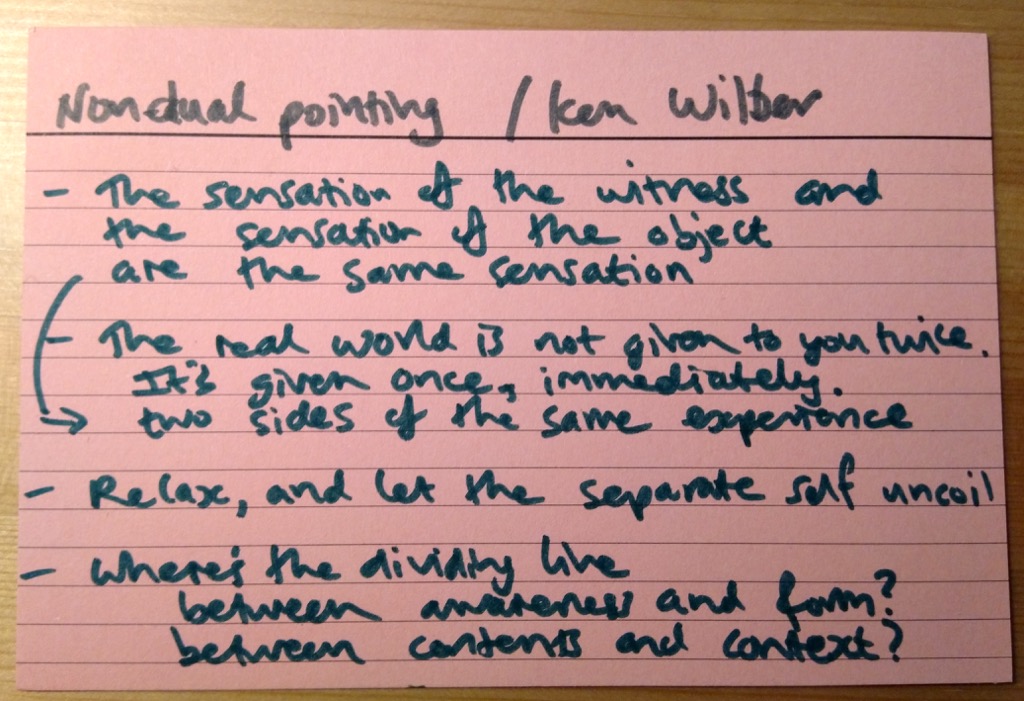 Nondual pointing / Ken Wilber
- The sensation of the witness and
the sensation of the object
are the same sensation
- The real world is not given to you twice.
It's given once, immediately.
→ two sides of the same experience
- Relax, and let the separate self uncoil
- Where's the dividing line
between awareness and form?
between contents and context?